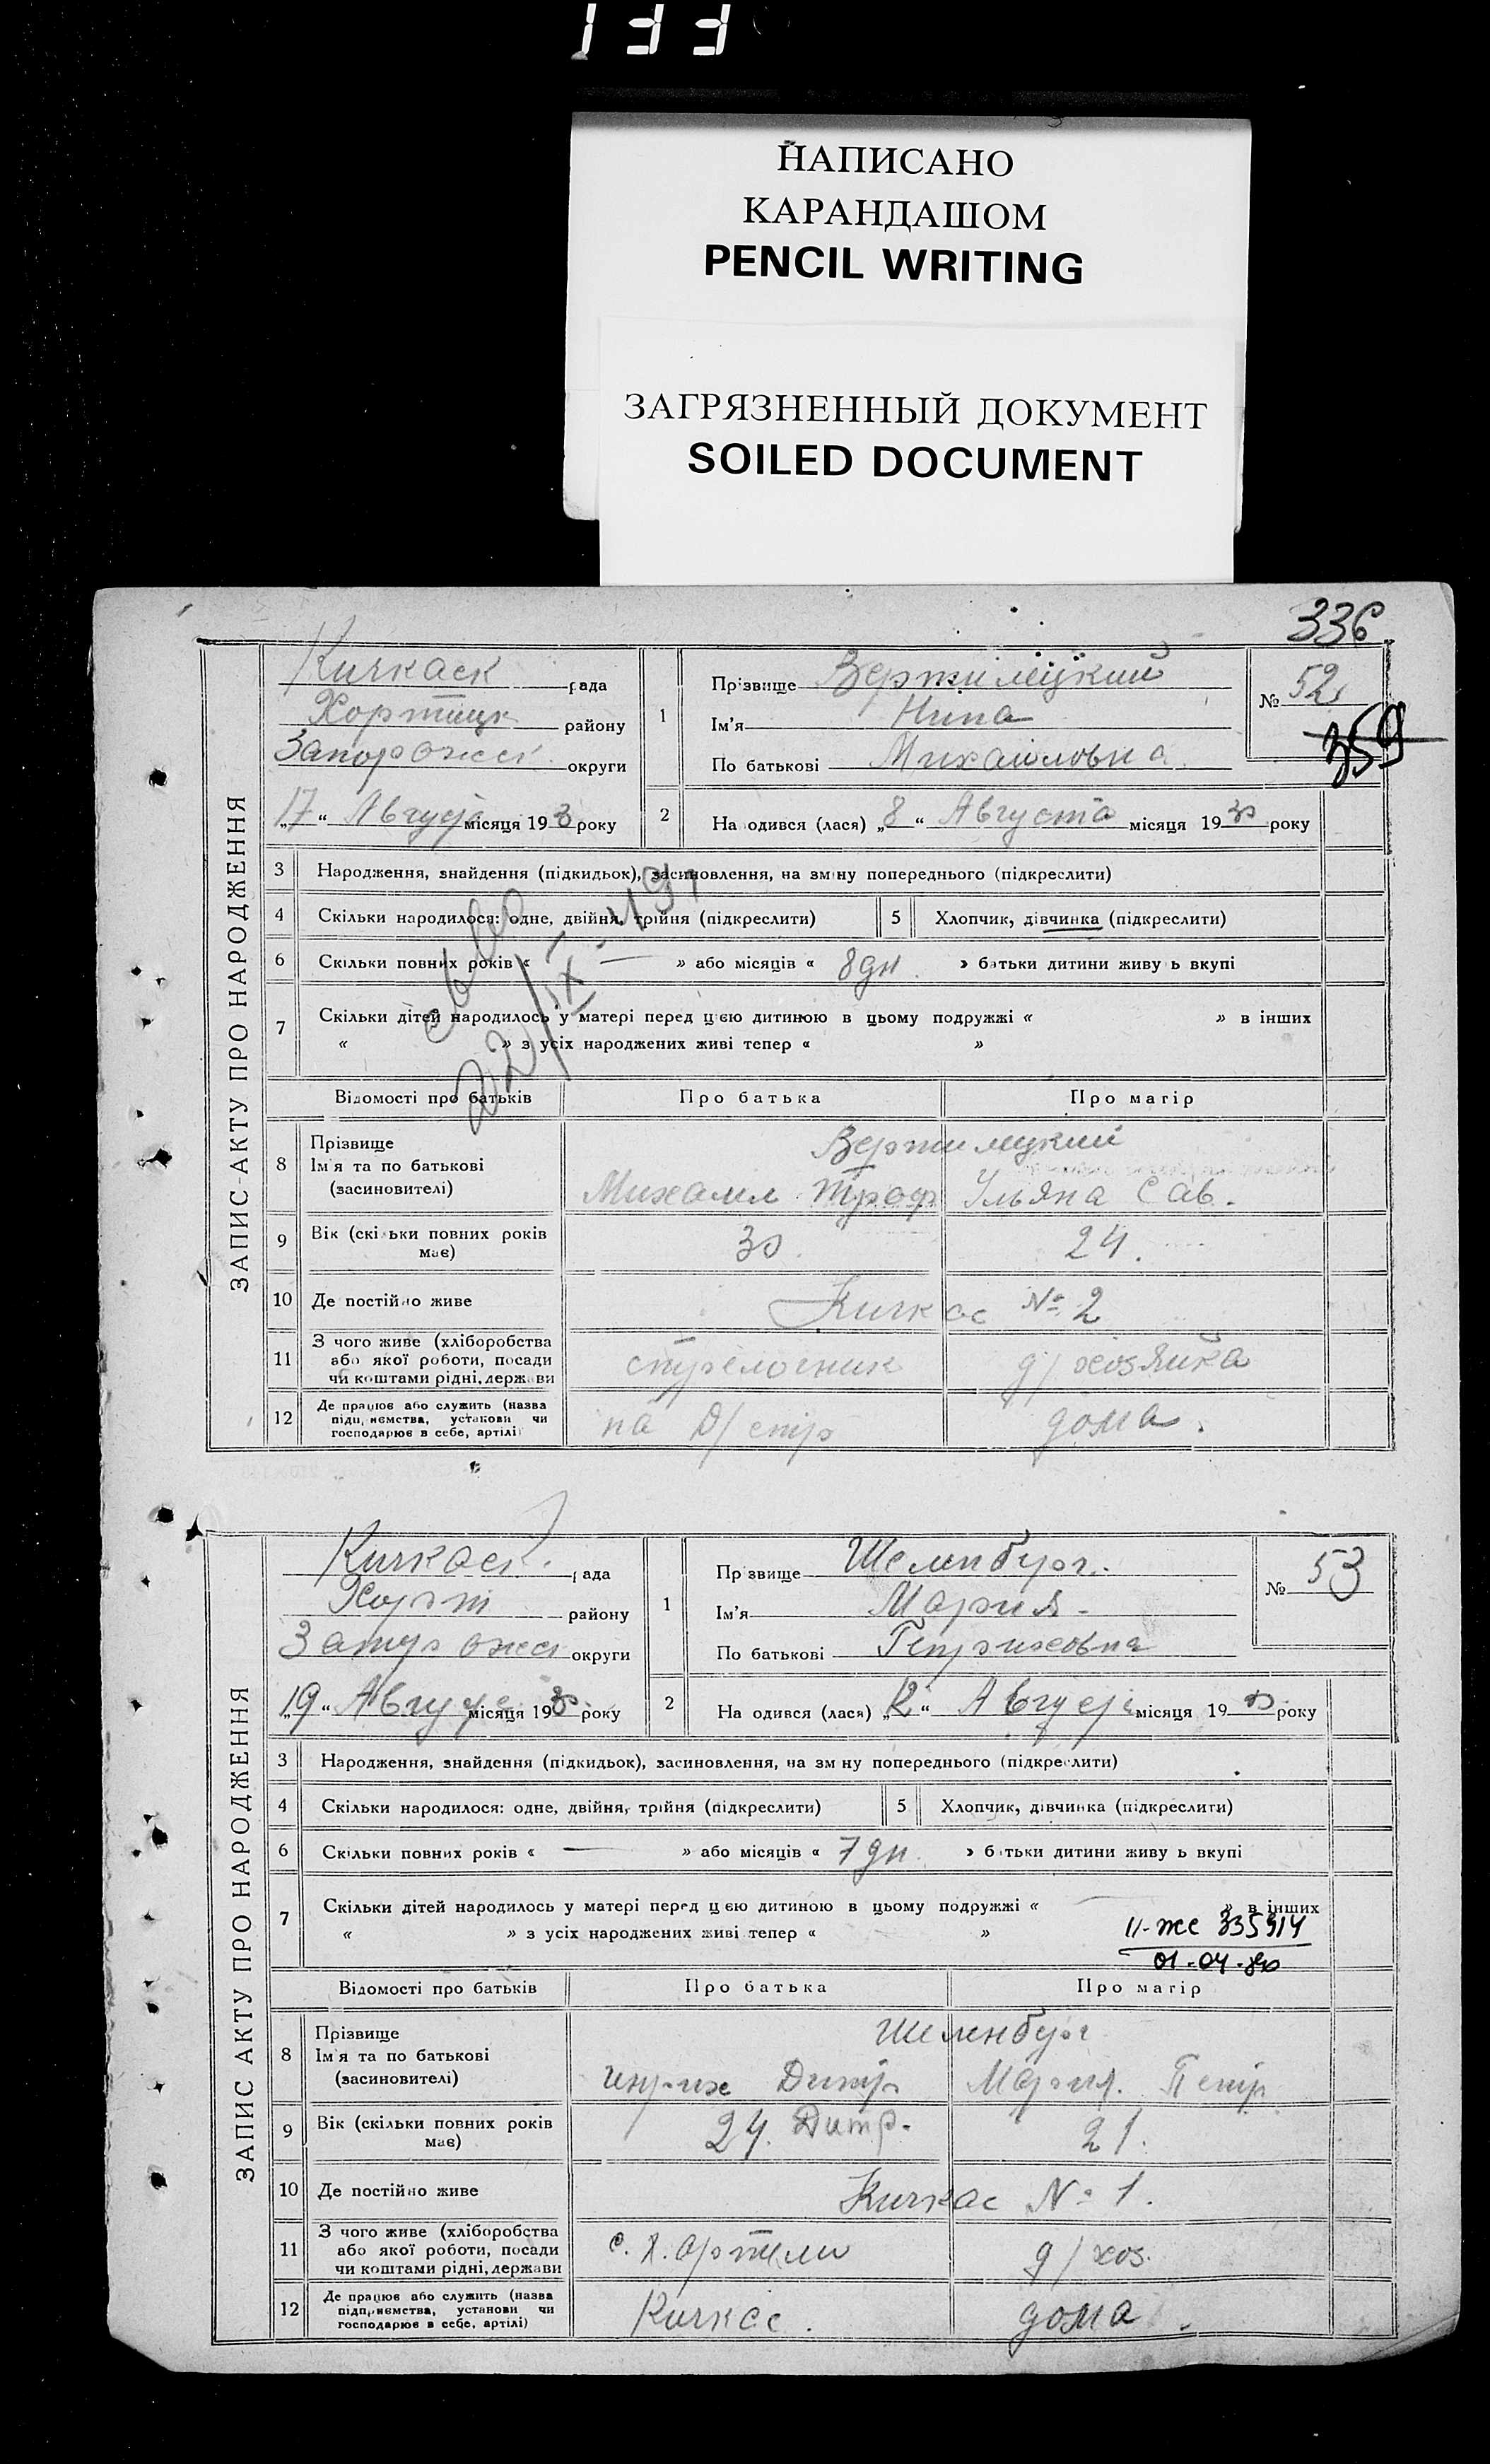 133
НАПИСАНО
КАРАНДАШОМ
PENCIL WRITING
ЗАГРЯЗНЕННЫЙ ДОКУМЕНТ
SOILED DOCUMENT
336
ЗАПИС-АКТУ ПРО НАРОДЖЕННЯ
Кичкаск рада
Хортицк району
Запорожск округи
„17“ Август місяця 1930 року
1
Прізвище Вертилецкий
Ім'я Нина
По батькові Михайловна
№ 52
359
2 Народився (лася) „8“ Августа місяця 1930 року
3 Народження, знайдення (підкидьок), засиновлення, на зміну попереднього (підкреслити)
4 Скільки народилося: одне, двійня, трійня (підкреслити)
5 Хлопчик, дівчинка (підкреслити)
6 Скільки повних років « — » або місяців « 8 дн. » батьки дитини живуть вкупі
7 Скільки дітей народилось у матері перед цією дитиною в цьому подружжі « » в інших
« » з усіх народжених живі тепер « »
22/IX-
Відомості про батьків Про батька Про матір
8 Прізвище
Ім'я та по батькові
(засиновителі)
Вертилецкий
Михаил Троф Ульяна Сав.
9 Вік (скільки повних років
має)
30. 24.
10 Де постійно живе Кичкас № 2
11 З чого живе (хліборобства
або якої роботи, посади
чи коштами рідні, держави
стрелочник д/хозяйка
12 Де працює або служить (назва
підприємства, установи чи
господарює в себе, артілі)
на Д/стр дома.
ЗАПИС АКТУ ПРО НАРОДЖЕННЯ
Кичкаск. рада
Хорт району
Запорожск округи
„19“ Август місяця 1930 року
1
Прізвище Шеленбург.
Ім'я Мария.
По батькові Генриховна
№ 53
2 Народився (лася) „12“ Август місяця 1930 року
3 Народження, знайдення (підкидьок), засиновлення, на зміну попереднього (підкреслити)
4 Скільки народилося: одне, двійня, трійня (підкреслити)
5 Хлопчик, дівчинка (підкреслити)
6 Скільки повних років « — » або місяців « 7 дн. » батьки дитини живуть вкупі
7 Скільки дітей народилось у матері перед цією дитиною в цьому подружжі « — » в інших
« » з усіх народжених живі тепер « »
II-ЖС 335914
01-04-80
Відомості про батьків Про батька Про матір
8 Прізвище
Ім'я та по батькові
(засиновителі)
Шеленбург
Генрих Дмитр Мария. Петр
9 Вік (скільки повних років
має)
24. Дитр. 21.
10 Де постійно живе Кичкас № 1.
11 З чого живе (хліборобства
або якої роботи, посади
чи коштами рідні, держави
с. х. артели д/хоз.
12 Де працює або служить (назва
підприємства, установи чи
господарює в себе, артілі)
Кичкас. дома.